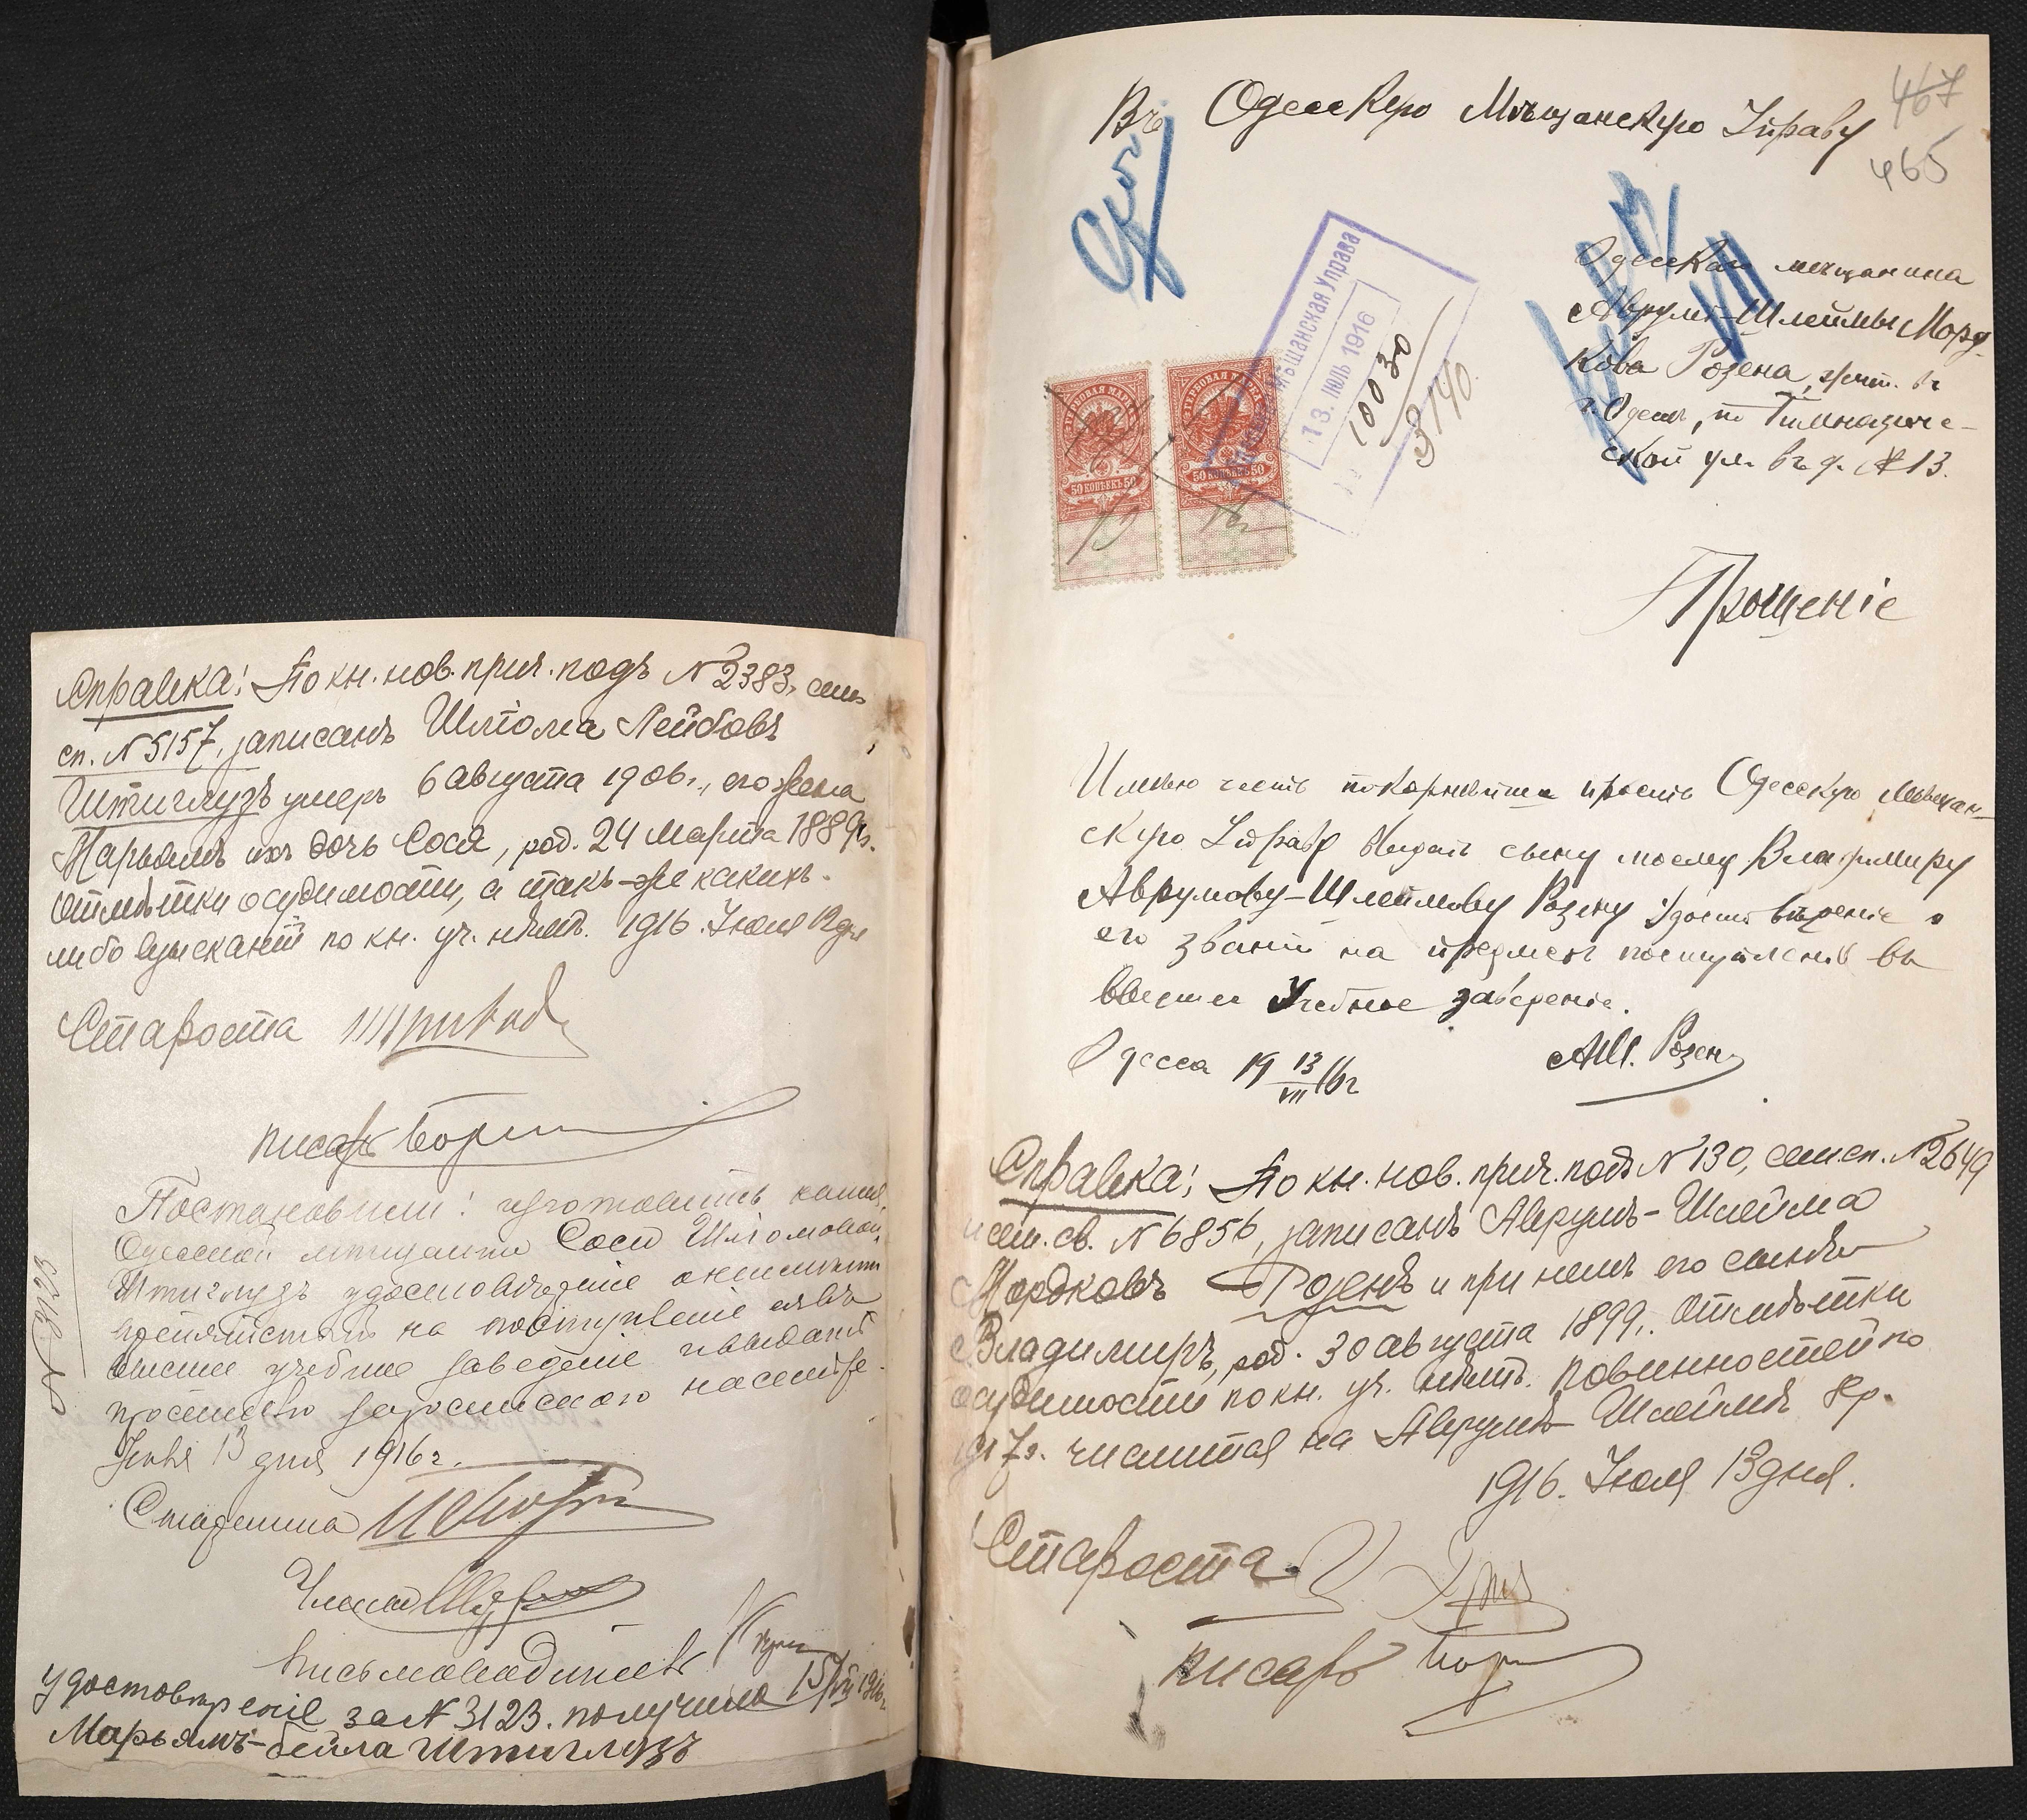 Справка: По кн. нов. прич. подъ №2383, сем.
сп. №5157, записанъ Шліома Лейбовъ
Штиглузъ умеръ 6 августа 1906 г., его жена
Марьямъ ихъ дочь Сося, род. 24 марта 1889 г.
Отмѣтки осудимости, а такъ-же какихъ-
либо взысканій по кн. уч. нѣтъ. 1916. Іюля 12 дня
Староста
писарь
Постановили: изготовить
Одесской мѣщанки Соси Шліомовой
Штиглузъ удостовѣреніе о неимѣніи
препятствій на поступленіе ея въ
высшее учебное заведеніе и выдать
Іюля 13 дня 1916 г.
Старшина
Членъ
Письмоводитель
№ 3123
Удостовѣреніе за № 3123. получила 15/VII 1916 г.
Марьямъ-Бейла Штиглузъ
467
465
Въ Одесскую Мѣщанскую Управу
Мѣщанская Управа
13. ІЮЛЬ 1916
10030
3140
ГЕРБОВАЯ МАРКА
50 КОПѢЕКЪ 50
ГЕРБОВАЯ МАРКА
50 КОПѢЕКЪ 50
Одесскаго мѣщанина
Аврумъ-Шлеймы Морд-
кова Розена, жит. въ
г. Одессѣ, по Гимназиче-
ской ул. въ д. № 13.
Прошеніе
Имѣю честь покорнѣйше просить Одесскую Мѣщан-
скую Управу выдать сыну моему Владимиру
Аврумову-Шлеймову Розену удостовѣреніе о
его званіи на предметъ поступленія въ
высшее учебное заведеніе.
Одесса 19 13/VII 16 г
А.Ш. Розенъ
Справка: По кн. нов. прич. подъ №130, сем. сп. №2649
и сем. св. №6856, записанъ Аврумъ-Шлейма
Мордковъ Розенъ и при немъ его сынъ
Владимиръ, род. 30 августа 1899 г. Отмѣтки
осудимости по кн. уч. нѣтъ. Повинностей по
1917 г. числится на Аврумѣ-Шлеймѣ 8 р.
1916. Іюля 13 дня.
Староста
писарь